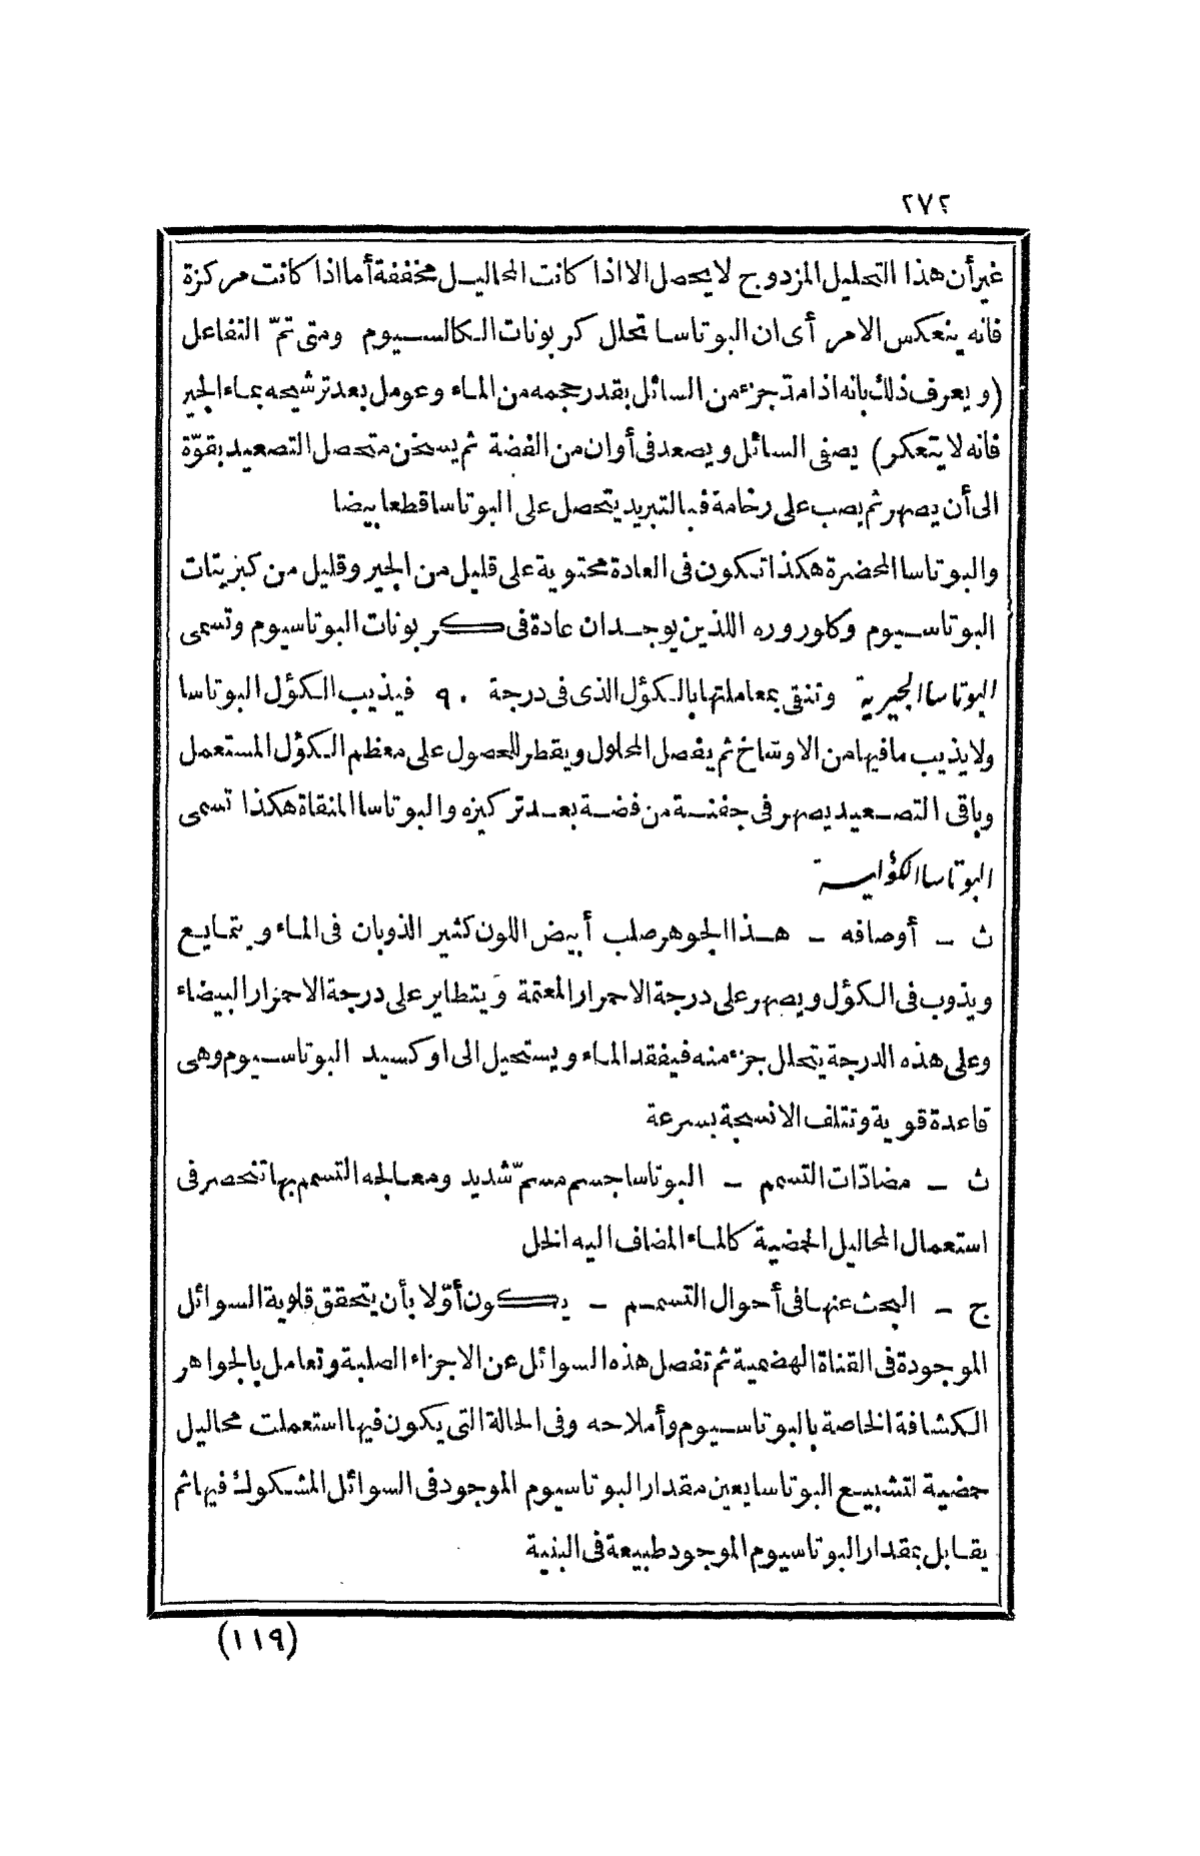 ٢٧٢
غير أن هذا التحليل المزدوج لا يحصل الا اذا كانت المحاليل مخففة أما اذا كانت مركزة
فانه ينعكس الامر أى ان البوتاسا تحلل كربونات الكالسيوم ومتى تمّ التفاعل
(ويعرف ذلك بانه اذا مدّ جزء من السائل بقدر حجمه من الماء وعومل بعد ترشيحه بماء الجير
فانه لا يتعكر) يصفى السائل ويصعد فى أوان من الفضة ثم يسخن متحصل التصعيد بقوّة
الى أن يصهر ثم يصب على رخامة فبالتبريد يتحصل على البوتاسا قطعا بيضا
والبوتاسا المحضرة هكذا تكون فى العادة محتوية على قليل من الجير وقليل من كبريتات
البوتاسيوم وكلوروره اللذين يوجدان عادة فى كربونات البوتاسيوم وتسمى
البوتاسا الجيرية وتنقى بمعاملتها بالكؤل الذى فى درجة ٩٠ فيذيب الكؤل البوتاسا
ولا يذيب ما فيها من الاوساخ ثم يفصل المحلول ويقطر للحصول على معظم الكؤل المستعمل
وباقى التصعيد يصهر فى جفنة من فضة بعد تركيزه والبوتاسا المنقاة هكذا تسمى
البوتاسا الكؤلية
ث – أوصافه – هذا الجوهر صلب أبيض اللون كثير الذوبان فى الماء ويتمايع
ويذوب فى الكؤل ويصهر على درجة الاحمرار المعتمة ويتطاير على درجة الاحمرار البيضاء
وعلى هذه الدرجة يتحلل جزء منه فيفقد الماء ويستحيل الى اوكسيد البوتاسيوم وهى
قاعدة قوية وتتلف الانسجة بسرعة
ث – مضادّات التسمم – البوتاسا جسم مسمّ شديد ومعالجه التسمم بها تنحصر فى
استعمال المحاليل الحمضية كالماء المضاف اليه الخل
ج – البحث عنها فى أحوال التسمم – يكون أوّلا بأن يتحقق قلوية السوائل
الموجودة فى القناة الهضمية ثم تفصل هذه السوائل عن الاجزاء الصلبة وتعامل بالجواهر
الكشافة الخاصة بالبوتاسيوم وأملاحه وفى الحالة التى يكون فيها استعملت محاليل
حمضية لتشبيع البوتاسا يعين مقدار البوتاسيوم الموجود فى السوائل المشكوك فيها ثم
يقابل بمقدار البوتاسيوم الموجود طبيعة فى البنية
(١١٩)